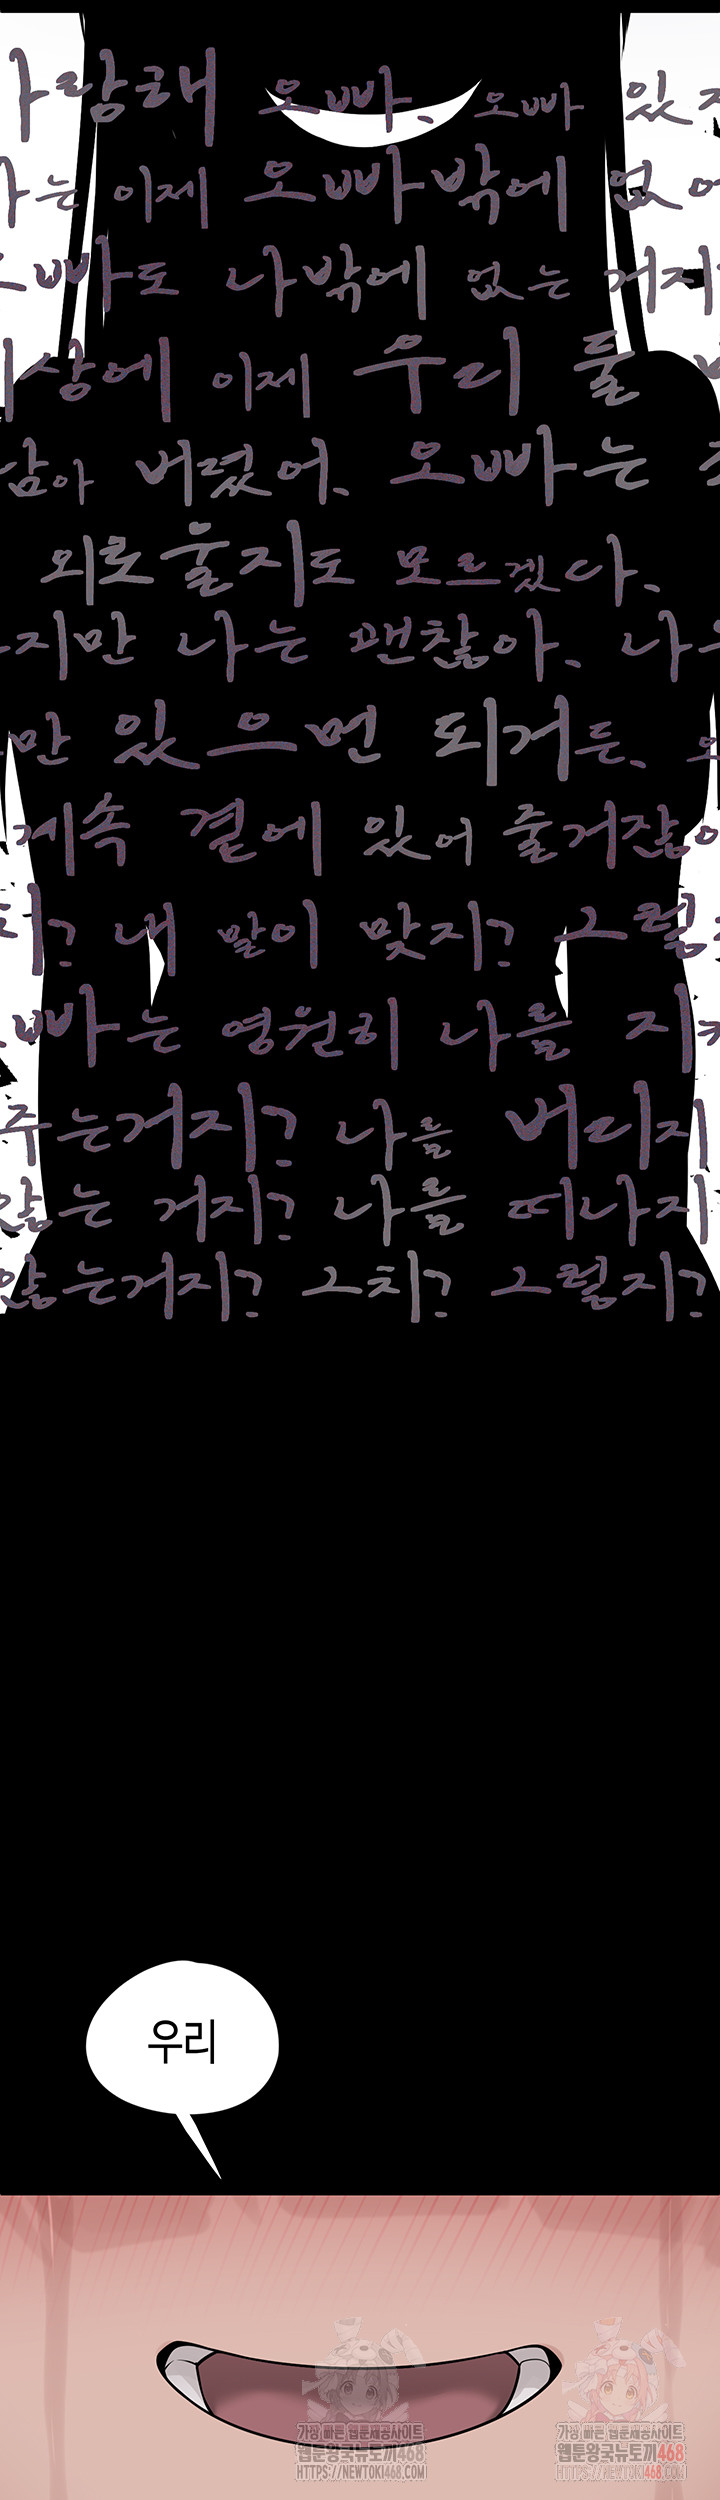 사랑해 오빠. 오빠 있지
나는 이제 오빠밖에 없어
오빠도 나밖에 없는 거지
세상에 이제 우리 둘
남아 버렸어. 오빠는
외로울지도 모르겠다.
하지만 나는 괜찮아. 나
만 있으면 되거든.
계속 곁에 있어 줄거잖아
내 말이 맞지? 그럼
오빠는 영원히 나를 지켜
주는거지? 나를 버리지
않는 거지? 나를 떠나지
않는거지? 그치? 그럼지?
우리
가장 빠른 웹툰제공사이트
웹툰왕국뉴토끼468
HTTPS://NEWTOKI468.COM
가장 빠른 웹툰제공사이트
웹툰왕국뉴토끼468
HTTPS://NEWTOKI468.COM